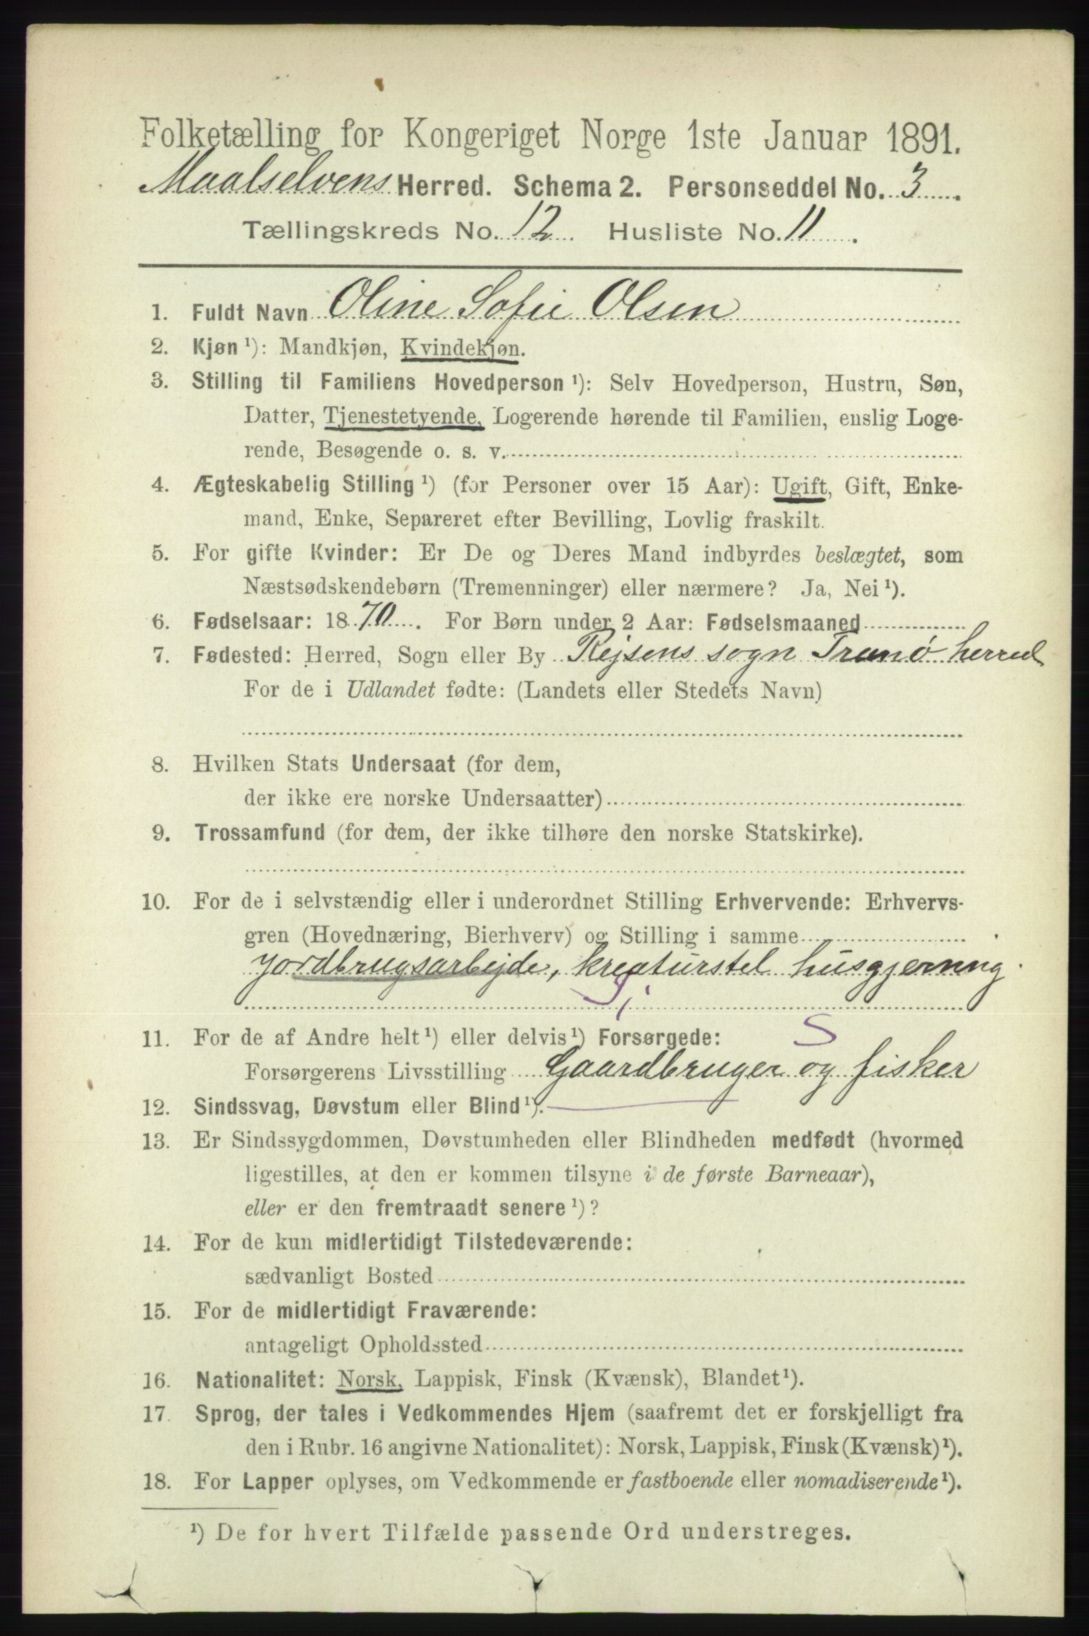 Folketælling for Kongeriget Norge 1ste Januar 1891.
Maalselvens Herred. Schema 2. Personseddel No. 3.
Tællingskreds No. 12. Husliste No. 11.
1. Fuldt Navn Oline Sofie Olsen
2. Kjøn ¹): Mandkjøn, Kvindekjøn.
3. Stilling til Familiens Hovedperson ¹): Selv Hovedperson, Hustru, Søn,
Datter, Tjenestetyende, Logerende hørende til Familien, enslig Loge-
rende, Besøgende o. s. v.
4. Ægteskabelig Stilling ¹) (for Personer over 15 Aar): Ugift, Gift, Enke-
mand, Enke, Separeret efter Bevilling, Lovlig fraskilt.
5. For gifte Kvinder: Er De og Deres Mand indbyrdes beslægtet, som
Næstsødskendebørn (Tremenninger) eller nærmere? Ja, Nei ¹).
6. Fødselsaar: 1870. For Børn under 2 Aar: Fødselsmaaned
7. Fødested: Herred, Sogn eller By Rejsens sogn Tranø herred
For de i Udlandet fødte: (Landets eller Stedets Navn)
8. Hvilken Stats Undersaat (for dem,
der ikke ere norske Undersaatter)
9. Trossamfund (for dem, der ikke tilhøre den norske Statskirke).
10. For de i selvstændig eller i underordnet Stilling Erhvervende: Erhvervs-
gren (Hovednæring, Bierhverv) og Stilling i samme
jordbrugsarbejde, kreaturstel husgjerning.
11. For de af Andre helt ¹) eller delvis ¹) Forsørgede:
Forsørgerens Livsstilling Gaardbruger og fisker
12. Sindssvag, Døvstum eller Blind ¹).
13. Er Sindssygdommen, Døvstumheden eller Blindheden medfødt (hvormed
ligestilles, at den er kommen tilsyne i de første Barneaar),
eller er den fremtraadt senere ¹)?
14. For de kun midlertidigt Tilstedeværende:
sædvanligt Bosted
15. For de midlertidigt Fraværende:
antageligt Opholdssted
16. Nationalitet: Norsk, Lappisk, Finsk (Kvænsk), Blandet ¹).
17. Sprog, der tales i Vedkommendes Hjem (saafremt det er forskjelligt fra
den i Rubr. 16 angivne Nationalitet): Norsk, Lappisk, Finsk (Kvænsk) ¹).
18. For Lapper oplyses, om Vedkommende er fastboende eller nomadiserende ¹).
¹) De for hvert Tilfælde passende Ord understreges.